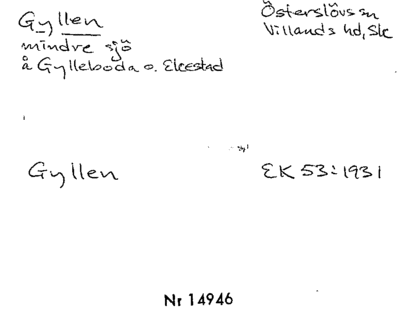 Gyllen
Österslövs sn
Villands hd, Sk
mindre sjö
å Gylleboda o. Ekestad
Gyllen
EK 53:1931
Nr 14946